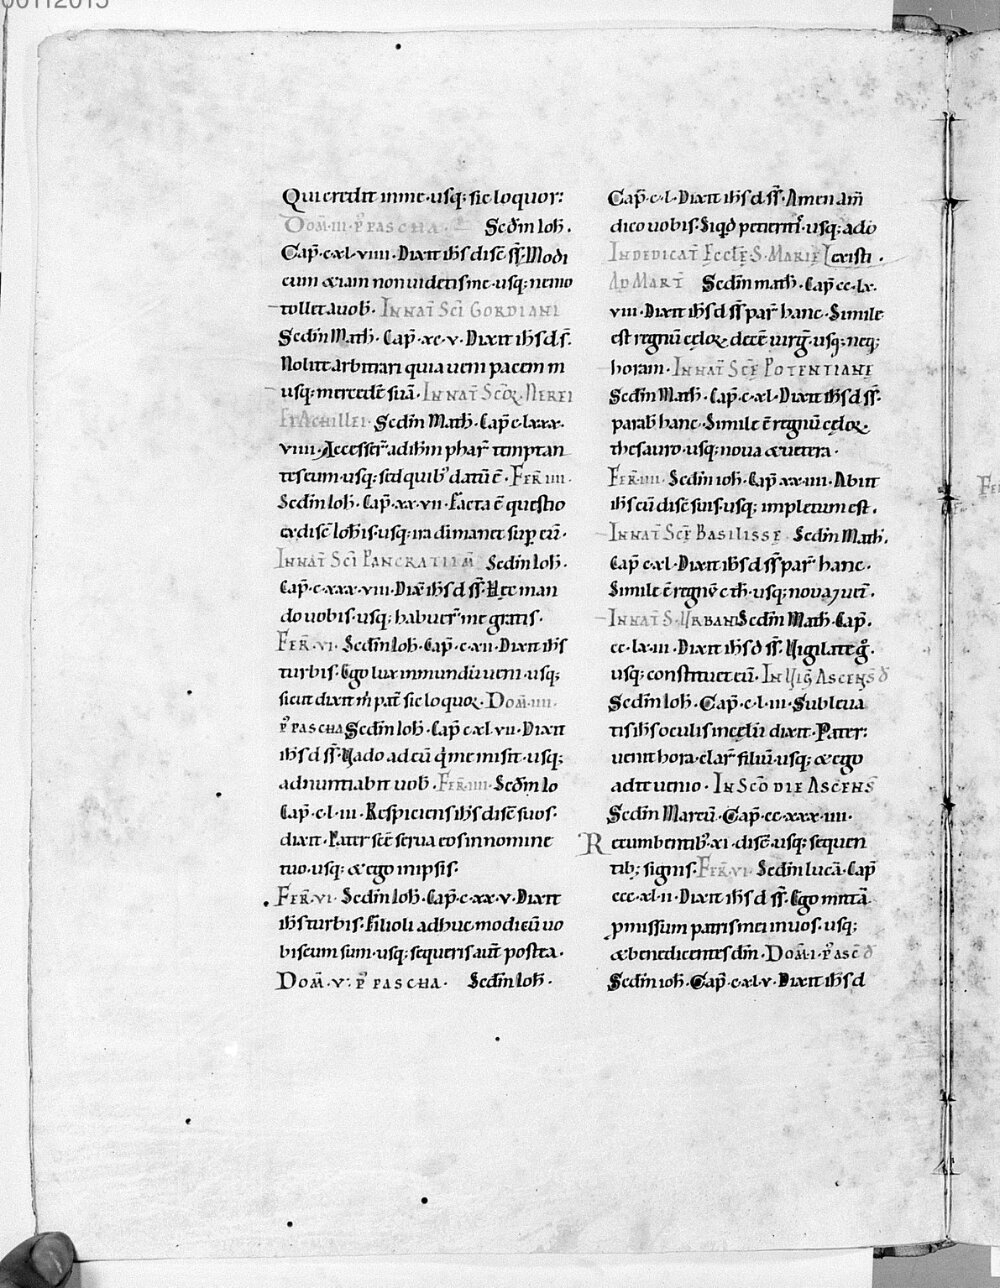 Qui credit in me·usq; sic loquor:
Dom̄·iii·p̉ pascha· Sec̄dm Ioh̄·
Cap̄·c·xl·viiii·Dixit ih̄s disc̄·ss̄·Modi
cum & iam non videtis me·usq; nemo
tollet a vob̄· In nat̄ Sc̄i Gordiani
Sec̄dm Math̄· Cap̄·xc·v·Dixit ih̄s d·s̄·
Nolite arbitrari quia veni pacem m
usq; mercedē suā· In nat̄ Sc̄oꝝ Nerei
Et Achillei· Sec̄dm Math̄·Cap̄·c·lxxx·
viiii·Accesser̄ ad ih̄m phar̄ temptan
tes eum·usq; sed quib' datū ē· Fer̄ iiii·
Sec̄dm Ioh̄·Cap̄·xx·vii·Facta ē questio
ex disc̄ Ioh̄is·usq; ira di manet sup̱ eū·
In nat̄ Sc̄i Pancratii m̄ Sec̄dm Ioh̄·
Cap̄·c·xxx·viii·Dix̄ ih̄s d ss̄·Hec man
do vobis·usq; habuer̄ me gratis·
Fer̄·vi· Sec̄dm Ioh̄·Cap̄·c·xii·Dixit ih̄s
turbis·Ego lux in mundū veni·usq;
sicut dixit m̄ pat̄ sic loquor· Dom̄·iiii·
p̉ pascha Sec̄dm Ioh̄·Cap̄·c·xl·vii·Dixit
ih̄s d ss̄·Vado ad eū q̇ me misit·usq;
adnuntiabit vob̄· Fer̄·iiii·Sec̄dm Io
Cap̄·c·l·iii·Respiciens ih̄s disc̄ suos·
dixit·Pater sc̄e serva eos in nomine
tuo·usq; & ego in ipsis·
Fer̄·vi· Sec̄dm Ioh̄·Cap̄·c·xx·v·Dixit
ih̄s turbis·Filioli adhuc modicū vo
biscum sum·usq; sequeris aut̄ postea·
Dom̄·v·p̉ pascha· Sec̄dm Ioh̄·
Cap̄·c·l·Dixit ih̄s d ss̄·Amen am̄
dico vobis·Siq̄d petierit̄·usq; a do
In dedicat̄ Eccle̜·S·Marie̜ [existi·
Ad Mart̄ Sec̄dm math̄·Cap̄·cc·lx·
viii·Dixit ih̄s d ss̄ par̄ hanc·Simile
est regnū celoꝝ decē virḡ·usq; neq;
horam· In nat̄ Sc̄e Potentiane
Sec̄dm Math̄·Cap̄·c·xl·Dixit ih̄s d ss̄·
parab̄ hanc·Simile ē regnū celoꝝ·
thesauro·usq; nova & vetera·
Fer̄·iiii· Sec̄dm ioh̄·Cap̄·xx·iiii·Abiit
ih̄s cū disc̄ suis·usq; impletum est·
In nat̄ Sc̄e Basilisse· Sec̄dm Math̄·
Cap̄·c·xl·Dixit ih̄s d ss̄ par̄ hanc·
Simile ē regnū c th̄·usq; nova ⁊ vet̄·
In nat̄ S·Urbani Sec̄dm Math̄·Cap̄·
cc·lx·iii·Dixit ih̄s d ss̄·Vigilate g̊·
usq; constituet eū· In Viḡ Ascens̄ d
Sec̄dm Ioh̄·Cap̄·c·l·iii·Subleva
tis ih̄s oculis in celū dixit·Pater:
venit hora·clar̄ filiū·usq; & ego
ad te venio· In Sc̄o die Ascens̄
Sec̄dm Marcū·Cap̄·cc·xxx·iiii·
Recumbentib'·xi·disc̄·usq; sequen
tib; signis· Fer̄·vi· Sec̄dm lucā·Cap̄
ccc·xl·ii·Dixit ih̄s d ss̄·Ego mittā
p̱missum patris mei in vos·usq;
& benedicentes dm̄· Dom̄·i·p̉ asc̄ d
Sec̄dm ioh̄·Cap̄·c·xl·v·Dixit ih̄s d